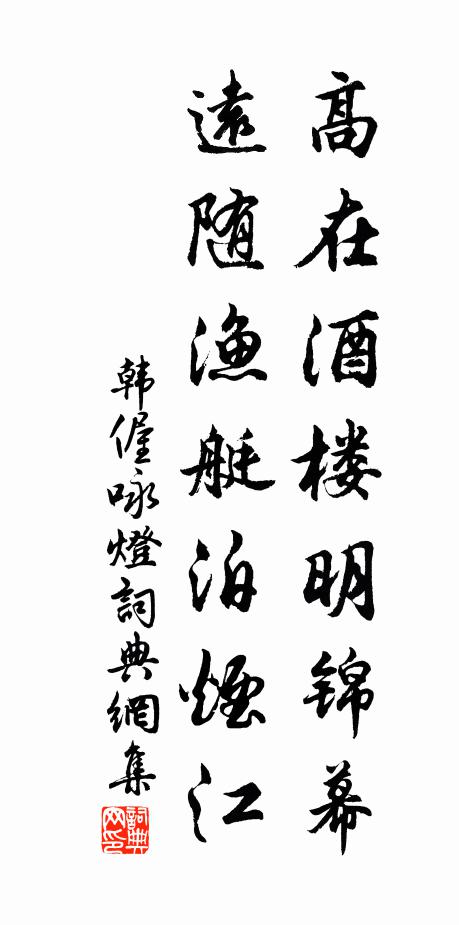 高在酒楼明锦幕
遠随漁艇泊煙江
韩偓咏燈詞典網集
詞典网印